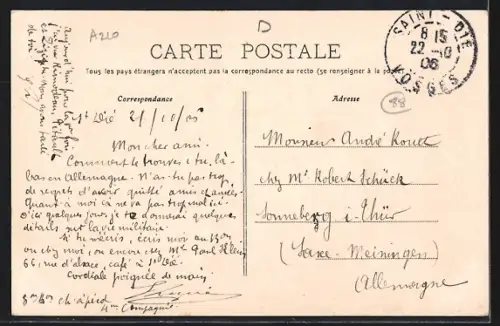 A210
D
SAINT-DIÉ
8 15
22-10
06
VOSGES
CARTE POSTALE
Tous les pays étrangers n'acceptent pas la correspondance au recto (Se renseigner à la poste)
Correspondance
Adresse
88
Aujourd'hui pour la 1ère fois
de toi
St Dié 21/10/06
Mon cher ami.
Comment te trouves-tu, là-
bas en Allemagne. N'as-tu pas trop
de regrets d'avoir quitté amis
Quant à moi ça ne va pas trop mal ici.
D'ici quelques jours je te donnerai quelques
détails sur la vie militaire.
Si tu m'écris, écris moi au
ou chez moi, ou encore chez Mr Paul Klein
66, rue d'Alsace, café à St Dié.
Cordiale poignée de main.
ch. à pied
4me Compagnie
Monsieur André
chez Mr Robert Schück
Sonneberg i. Thür
(Saxe-Meiningen)
Allemagne